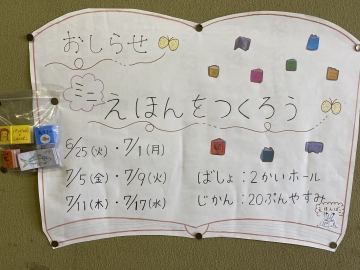 おしらせ
ミニ
えほんをつくろう
6/25(火)・7/1(月)
7/5(金)・7/9(火)
7/11(木)・7/17(水)
ばしょ:2かいホール
じかん:20ぷんやすみ